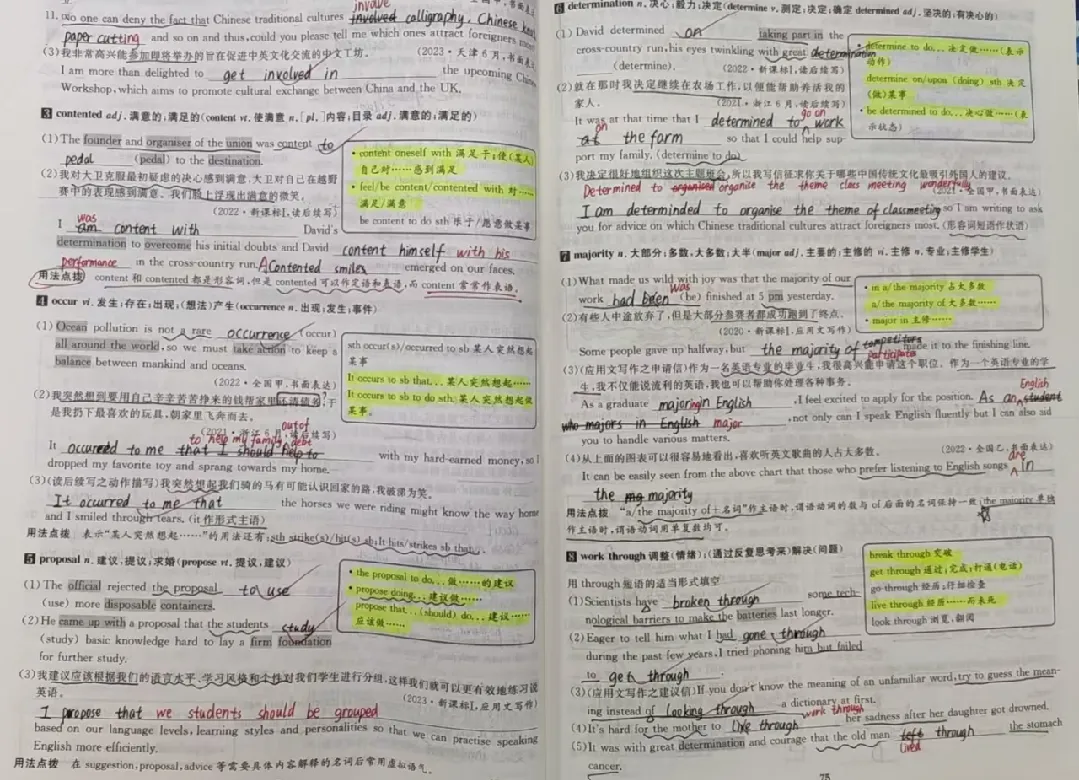 11. No one can deny the fact that Chinese traditional cultures involved involve calligraphy, Chinese
paper cutting and so on and thus, could you please tell me which ones attract foreigners most
(3)我非常高兴能参加即将举办的旨在促进中英文化交流的中文工坊。 (2023·天津6月,书面表
I am more than delighted to get involved in the upcoming Chinese
Workshop, which aims to promote cultural exchange between China and the UK.
3 contented adj. 满意的;满足的(content vt. 使满意 n. [pl.]内容;目录 adj. 满意的;满足的)
(1)The founder and organiser of the union was content to
pedal (pedal) to the destination.
(2)我对大卫克服最初疑虑的决心感到满意,大卫对自己在越野
赛中的表现感到满意。我们脸上浮现出满意的微笑。
(2022·新课标Ⅰ,读后续写)
was
I am content with David's
determination to overcome his initial doubts and David content himself with his
performance in the cross-country run. A Contented smiles emerged on our faces.
• content oneself with 满足于;使(某人)
自己对……感到满足
• feel/be content/contented with 对……
满足/满意
be content to do sth 乐于/愿意做某事
用法点拨 content 和 contented 都是形容词,但是 contented 可以作定语和表语,而 content 常常作表语。
4 occur vi. 发生;存在;出现;(想法)产生(occurrence n. 出现;发生;事件)
(1)Ocean pollution is not a rare occurrence (occur)
all around the world, so we must take action to keep a
balance between mankind and oceans.
(2022·全国甲,书面表达)
(2)我突然想到要用自己辛辛苦苦挣来的钱帮家里还清债务,于
是我扔下最喜欢的玩具,朝家里飞奔而去。
(2021·浙江6月,读后续写)
out of
to help my family debt
It occurred to me that I should help to with my hard-earned money, so I
dropped my favorite toy and sprang towards my home.
sth occur(s)/occurred to sb 某人突然想起
某事
It occurs to sb that... 某人突然想起……
It occurs to sb to do sth 某人突然想起做
某事。
(3)(读后续写之动作描写)我突然想起我们骑的马有可能认识回家的路,我破涕为笑。
It ocurred to me that the horses we were riding might know the way home
and I smiled through tears. (it 作形式主语)
用法点拨 表示“某人突然想起……”的用法还有:sth strike(s)/hit(s) sb;It hits/strikes sb that...。
5 proposal n. 建议;提议;求婚(propose vt. 提议,建议)
(1)The official rejected the proposal to use
(use) more disposable containers.
(2)He came up with a proposal that the students study
(study) basic knowledge hard to lay a firm foundation
for further study.
• the proposal to do... 做……的建议
• propose doing... 建议做……
propose that...(should) do... 建议……
应该做……
(3)我建议应该根据我们的语言水平、学习风格和个性对我们学生进行分组,这样我们就可以更有效地练习说
英语。 (2023·新课标Ⅰ,应用文写作)
I propose that we students should be grouped
based on our language levels, learning styles and personalities so that we can practise speaking
English more efficiently.
用法点拨 在 suggestion, proposal, advice 等需要具体内容解释的名词后常用虚拟语气。
6 determination n. 决心;毅力;决定(determine v. 测定;决定;确定 determined adj. 坚决的;有决心的)
(1) David determined on taking part in the
cross-country run, his eyes twinkling with great determination
(determine). (2022·新课标Ⅰ,读后续写)
(2)就在那时我决定继续在农场工作,以便能帮助养活我的
家人。 (2021·浙江6月,读后续写)
go on
It was at that time that I determined to work
on
at the farm so that I could help sup
port my family. (determine to do)
• determine to do... 决定做……(表示
动作)
determine on/upon (doing) sth 决定
(做)某事
• be determined to do... 决心做……(表
示状态)
(3)我决定很好地组织这次主题班会,所以我写信征求你关于哪些中国传统文化最吸引外国人的建议。
Determined to organised organise the theme class meeting wonderfully
(2021·全国甲,书面表达)
I am determinded to organise the theme of classmeeting so I am writing to ask
you for advice on which Chinese traditional cultures attract foreigners most. (形容词短语作状语)
7 majority n. 大部分;多数;大多数;大半(major adj. 主要的;主修的 vi. 主修 n. 专业;主修学生)
(1)What made us wild with joy was that the majority of our
work had been was (be) finished at 5 pm yesterday.
(2)有些人中途放弃了,但是大部分参赛者都成功跑到了终点。
(2020·新课标Ⅰ,应用文写作)
Some people gave up halfway, but the majority of competitors made it to the finishing line.
• in a/the majority 占大多数
a/the majority of 大多数……
• major in 主修……
(3)(应用文写作之申请信)作为一名英语专业的毕业生,我很高兴能申请这个职位。作为一个英语专业的学
生,我不仅能说流利的英语,我也可以帮助你处理各种事务。
English
As a graduate majoring in English , I feel excited to apply for the position. As an student
who majors in English major , not only can I speak English fluently but I can also aid
you to handle various matters.
(4)从上面的图表可以很容易地看出,喜欢听英文歌曲的人占大多数。 (2022·全国乙,书面表达)
are
It can be easily seen from the above chart that those who prefer listening to English songs in
the majority
用法点拨 “a/the majority of+名词”作主语时,谓语动词的数与 of 后面的名词保持一致;the majority 单独
作主语时,谓语动词用单复数均可。
8 work through 调整(情绪);(通过反复思考来)解决(问题)
用 through 短语的适当形式填空
(1)Scientists have broken through some tech-
nological barriers to make the batteries last longer.
(2)Eager to tell him what I had gone through
during the past few years, I tried phoning him but failed
to get through .
break through 突破
get through 通过;完成;打通(电话)
go through 经历;仔细检查
live through 经历……而未死
look through 浏览,翻阅
(3)(应用文写作之建议信)If you don't know the meaning of an unfamiliar word, try to guess the mean-
ing instead of looking through a dictionary at first.
work through
(4)It's hard for the mother to live through her sadness after her daughter got drowned.
(5)It was with great determination and courage that the old man left through the stomach
lived
cancer.
75